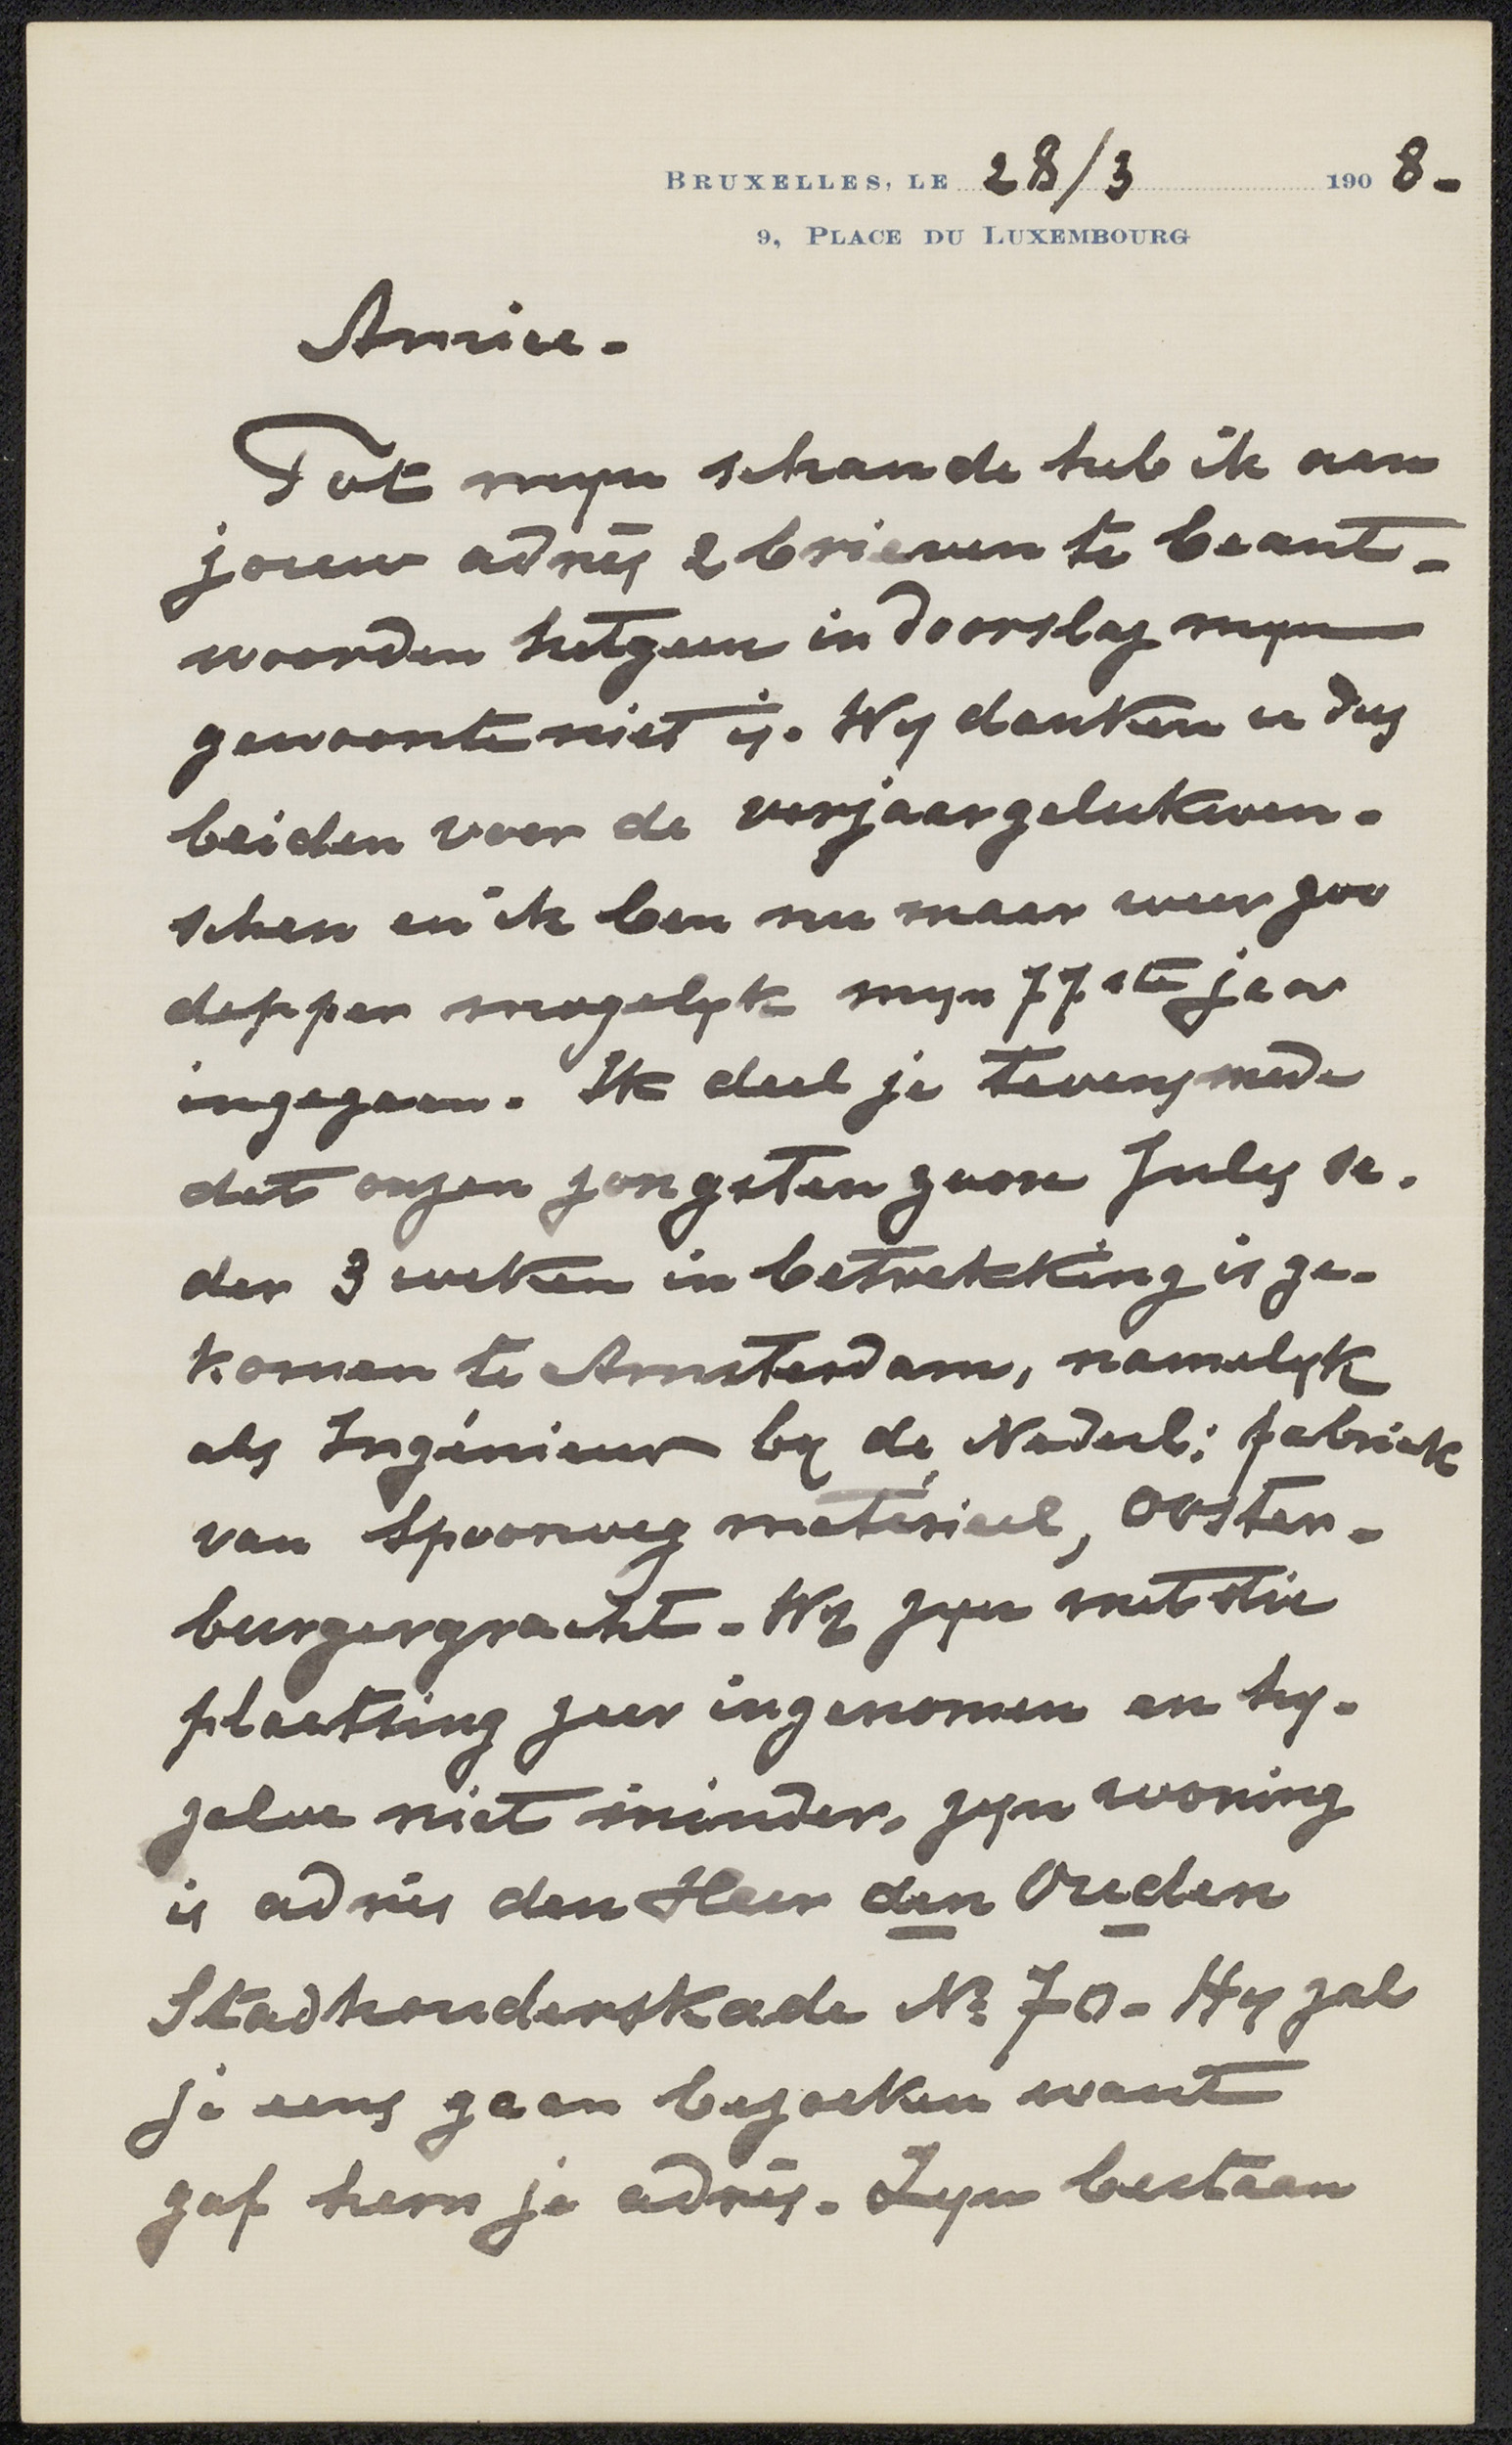 BRUXELLES, LE 28/3 1908-
9, PLACE DU LUXEMBOURG
Amice-
Tot myn schande heb ik aan
jouw adrès 2 brieven te beant-
woorden hetgeen in doorslag myn
gewoonte niet is. Wy danken u dus
beiden voor de verjaargelukwen-
schen en ik ben nu maar weer zoo
dapper mogelyk myn 77ste jaar
ingegaan. Ik deel je tevens mede
dat onzen jongsten zoon Jules se-
der 3 weken in betrekking is ge-
komen te Amsterdam, namelyk
als Ingénieur by de Nederl: fabriek
van Spoorweg matérieel, Ooster-
burgergracht- Wy zyn met die
plaatsing zeer ingenomen en hy-
zelve niet minder, zyn woning
is adrès den Heer den Ouden
Stadhouderskade No 70- Hy zal
je eens gaan bezoeken want
gaf hem je adrès. Zyn bestaan